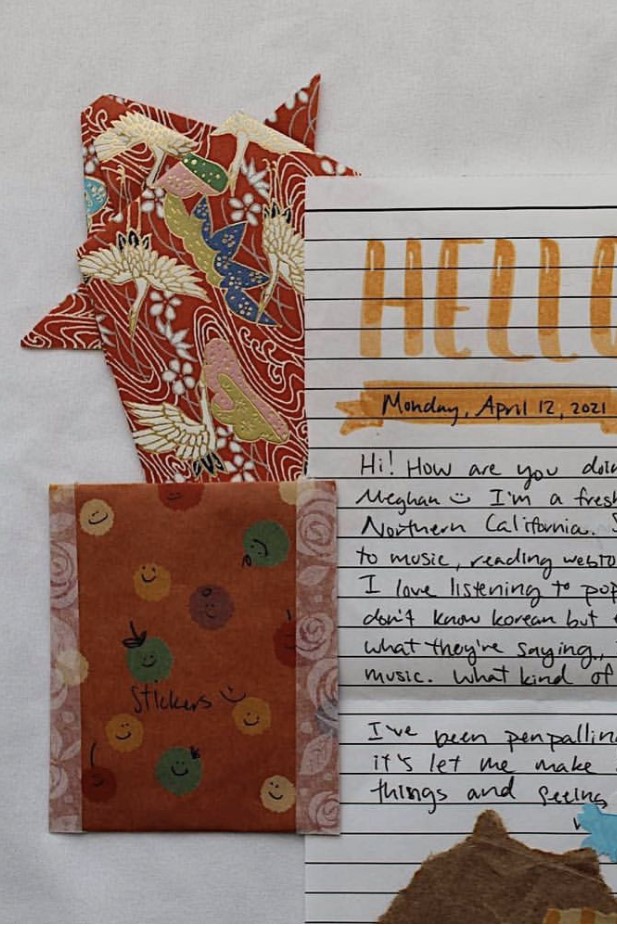 HELLO
Monday, April 12, 2021
Hi! How are you doin
Meghan I'm a fresh
Northern California. S
to music, reading webto
I love listening to pop
don't know korean but
what they're saying,
music. What kind of
Stickers
I've been penpalling
it's let me make
things and seeing